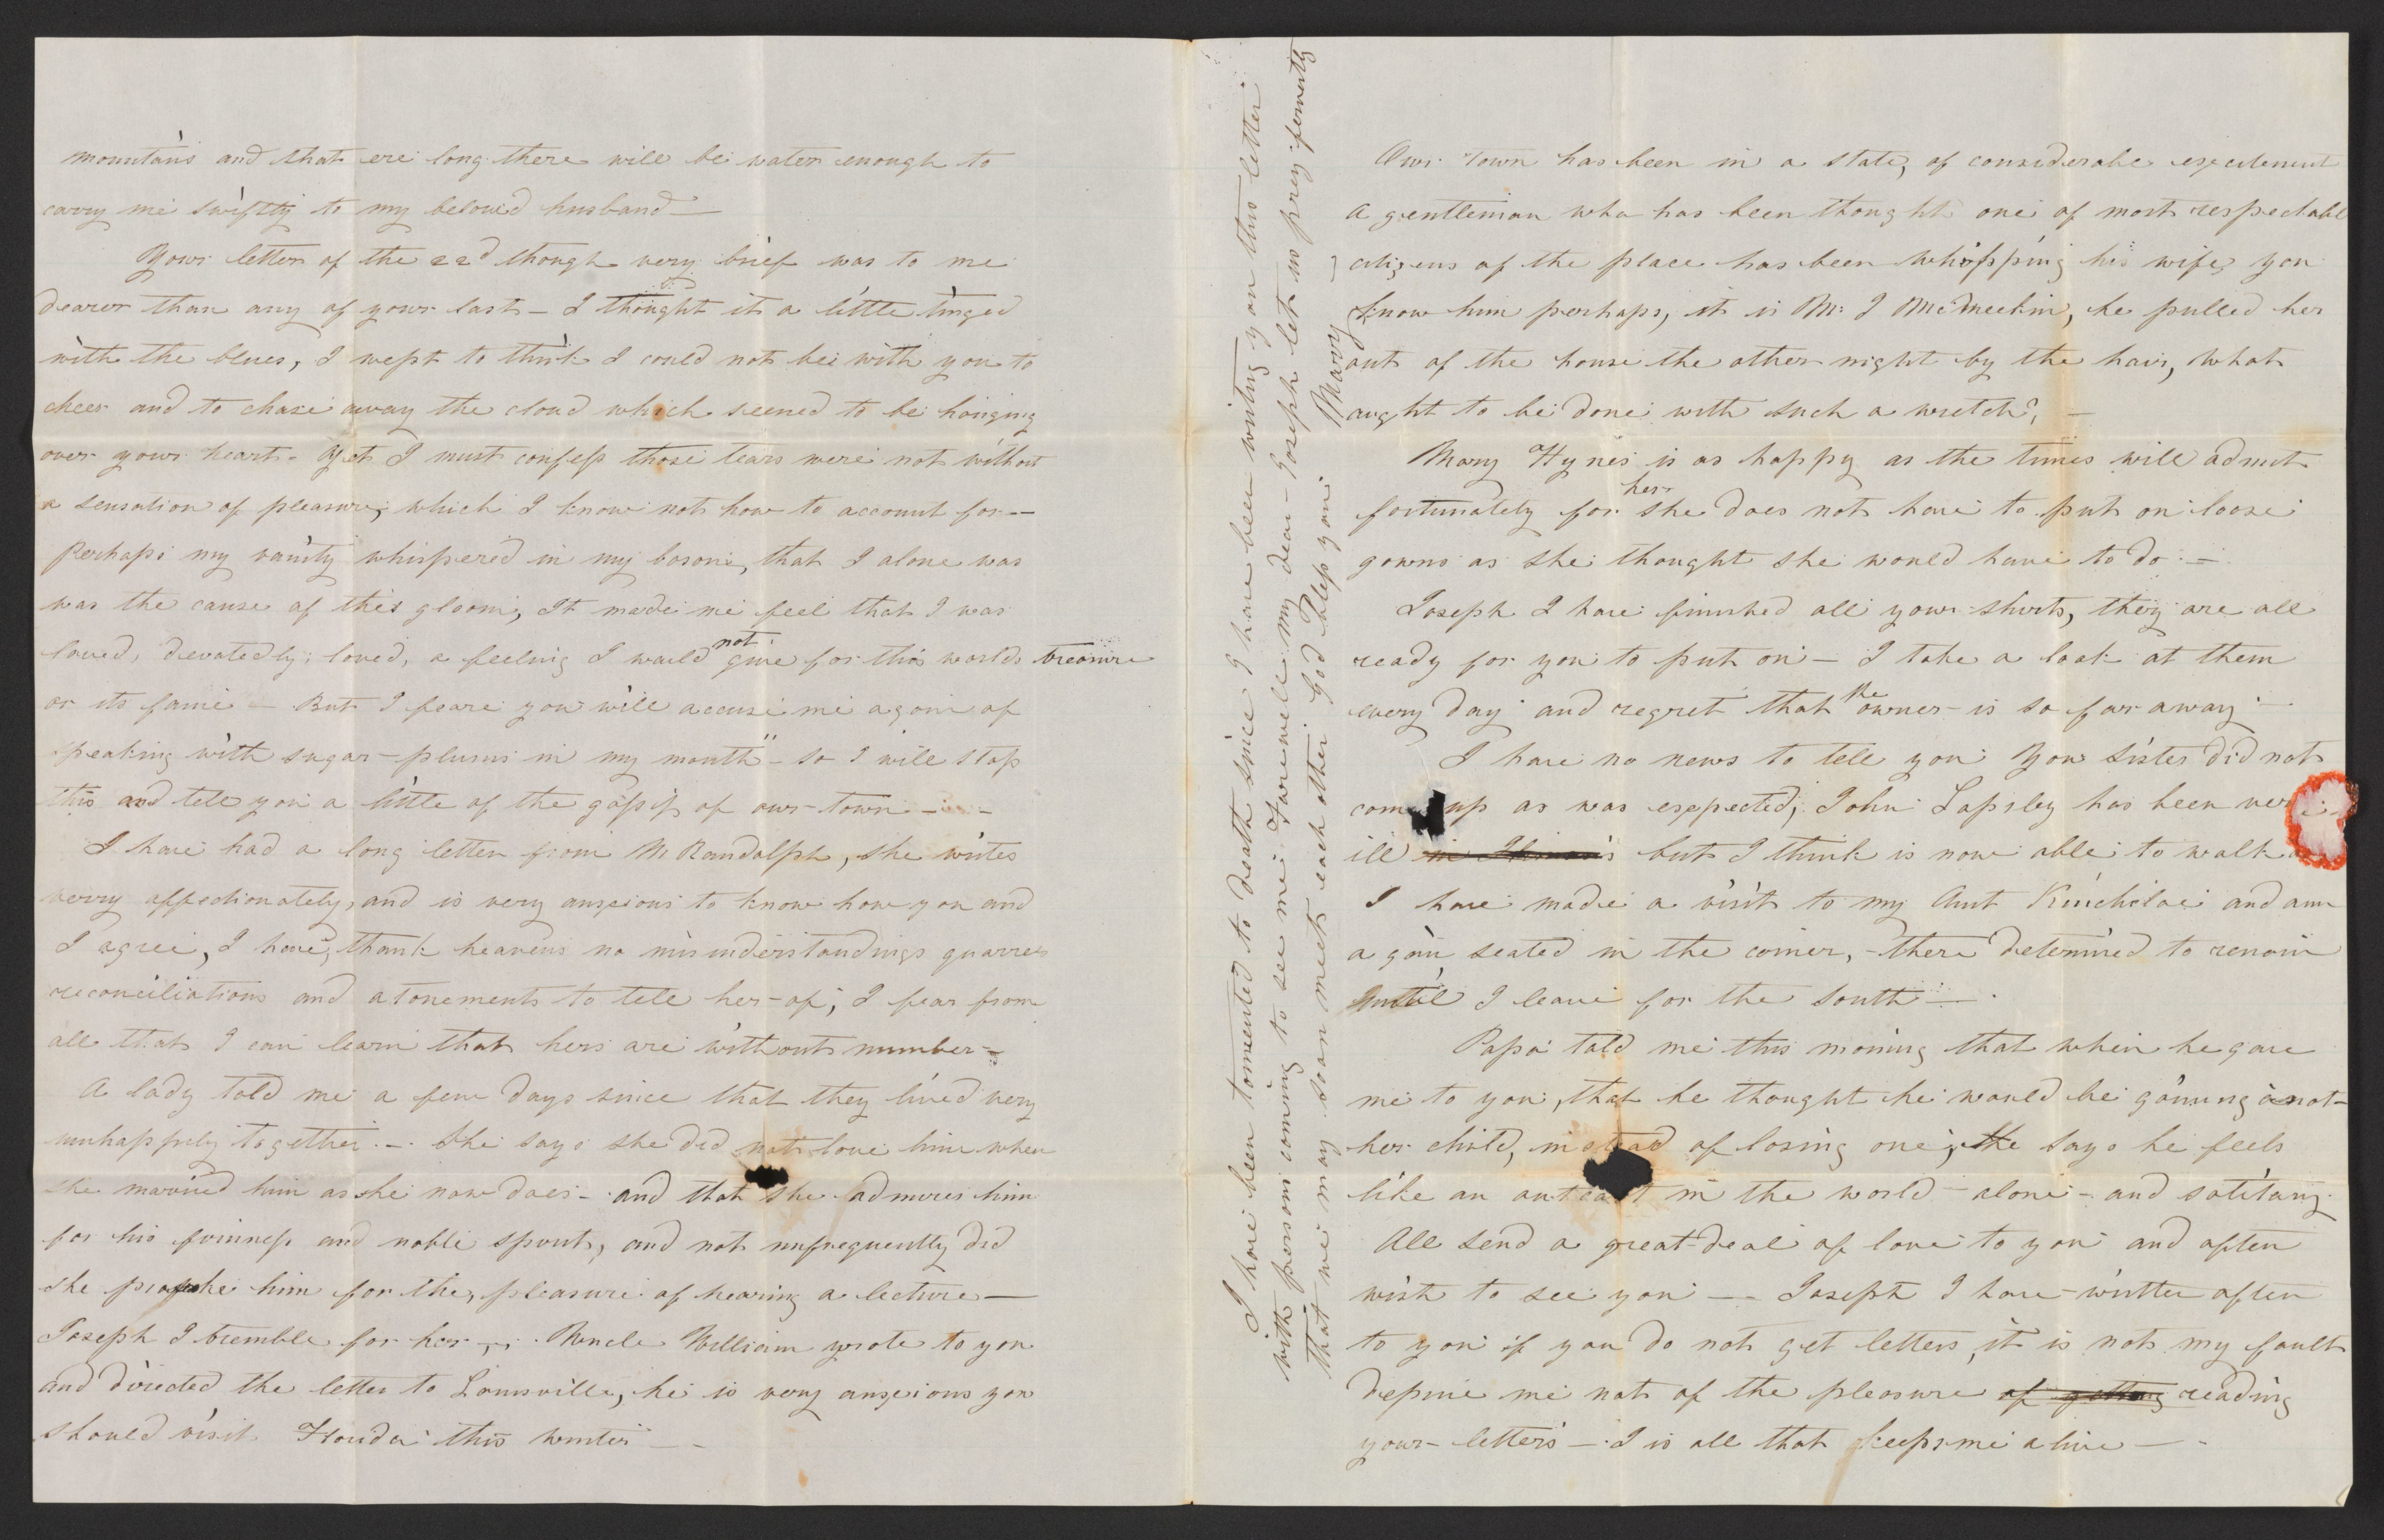 mountains and that ere long there will be water enough to
carry me swiftly to my beloved husband —
Your letter of the 22d though very brief was to me
dearer than any of your last — I thought it a little tinged
with the blues, I wept to think I could not be with you to
cheer and to chase away the cloud which seemed to be hanging
over your heart — Yet I must confess those tears were not without
a sensation of pleasure, which I know not how to account for —
Perhaps my vanity whispered in my bosom, that I alone was
was the cause of this gloom, It made me feel that I was
loved, devotedly loved, a feeling I would not give for this worlds treasure
or its fame — But I feare you will accuse me again of
speaking with sugar-plums in my mouth" — so I will stop
this and tell you a little of the gossip of our town — —
I have had a long letter from M Randolph, she writes
verry affectionately, and is very anxious to know how you and
I agree, I have, thank heavens no misunderstandings quarrels
reconciliations and atonements to tell her of, I fear from
all that I can learn that hers are without number —
A lady told me a few days since that they lived very
unhappily together. — She says she did not love him when
she married him as she now does — and that she admires him
for his firmness and noble spirit, and not unfrequently did
she him for the pleasure of hearing a lecture —
Joseph I tremble for her — Uncle William wrote to you
and directed the letter to Louisville, he is very anxious you
should visit Florida this winter — —
Our Town has been in a state, of considerable excitement
a gentleman who has been thought one of most respectable
citizens of the place has been whipping his wife, you
know him perhaps, it is Mr J McMeekin, he pulled her
out of the house the other night by the hair, what
aught to be done with such a wretch? —
Mary Hynes is as happy as the times will admit
fortunately for her she does not have to put on loose
gowns as she thought she would have to do —
Joseph I have finished all your shirts, they are all
ready for you to put on — I take a look at them
every day and regret that the owner is so far away —
I have no news to tell you You sister did not
come up as was expected, John Lapsley has been very
ill but I think is now able to walk
I have made a visit to my Aunt Kincheloe and am
again seated in the corner, — there determined to remain
until I leave for the south — .
Papa told me this morning that when he gave
me to you, that he thought he would be gaining anot-
her child, instead of losing one, He says he feels
like an outcast in the world — alone — and solitary
All send a great deal of love to you and often
wish to see you — — Joseph I have written often
to you if you do not get letters, it is not my fault
deprive me not of the pleasure of getting reading
your letters — I is all that keeps me alive —
I have been tormented to death since I have been writing you this letter
with persons coming to see me. Farewell my dear Joseph let us prey fervently
that we may soon meet each other God bless you
Mary